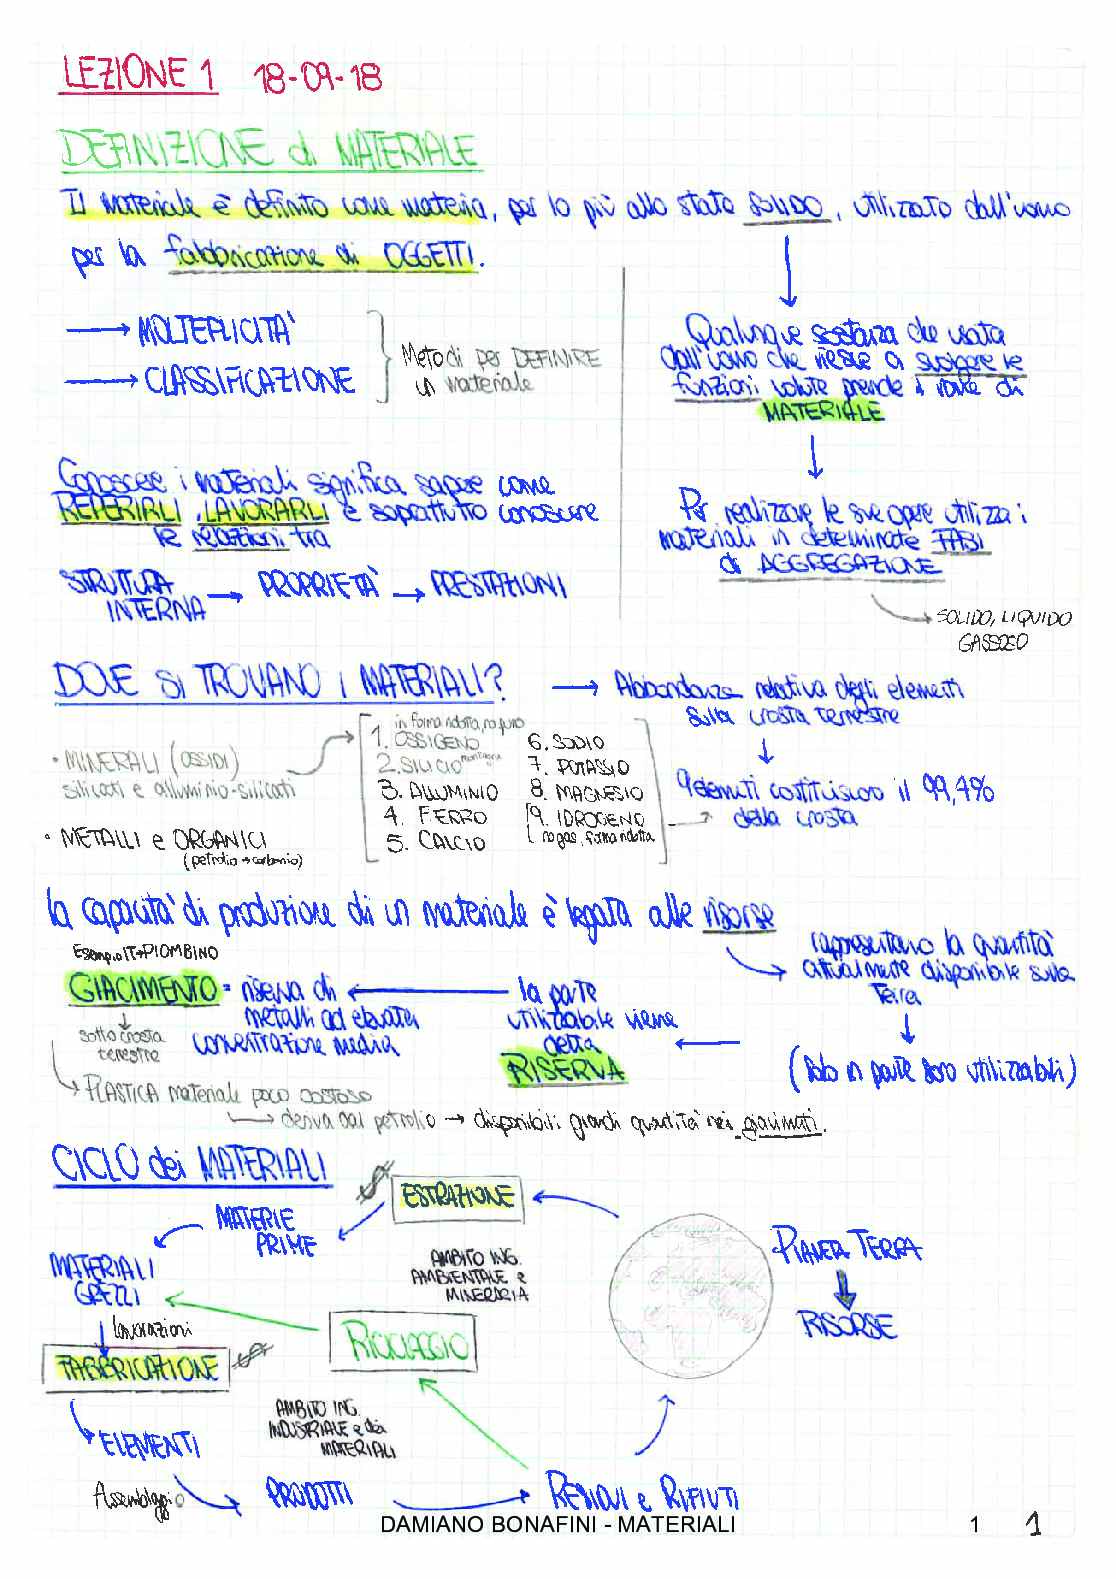 LEZIONE 1 18-09-18
DEFINIZIONE di MATERIALE
Il materiale è definito come materia, per lo più allo stato SOLIDO, utilizzato dall'uomo
per la fabbricazione di OGGETTI.
→ MOLTEPLICITA'
→ CLASSIFICAZIONE
Metodi per DEFINIRE
un materiale
Qualunque sostanza che usata
dall'uomo che riesce a svolgere le
funzioni volute prende il nome di
MATERIALE
Conoscere i materiali significa sapere come
REPERIRLI, LAVORARLI e soprattutto conoscere
le relazioni tra
STRUTTURA
INTERNA → PROPRIETA' → PRESTAZIONI
Per realizzare le sue opere utilizza i
materiali in determinate FASI
di AGGREGAZIONE
→ SOLIDO, LIQUIDO
GASSOSO
DOVE SI TROVANO i MATERIALI?
→ Abbondanza relativa degli elementi
sulla crosta terrestre
• MINERALI (OSSIDI)
silicati e alluminio-silicati
• METALLI e ORGANICI
(petrolio → carbonio)
in forma ridotta, no puro
1. OSSIGENO
2. SILICIO
3. ALLUMINIO
4. FERRO
5. CALCIO
6. SODIO
7. POTASSIO
8. MAGNESIO
9. IDROGENO
no gas, forma ridotta
9 elementi costituiscono il 99,4%
della crosta
la capacità di produzione di un materiale è legata alle risorse
rappresentano la quantità
attualmente disponibile sulla
Terra
(solo in parte sono utilizzabili)
la parte
utilizzabile viene
detta
RISERVA
Esempio IT→PIOMBINO
GIACIMENTO = riserva di
metalli ad elevata
concentrazione media
sotto crosta
terrestre
→ PLASTICA materiale poco costoso
→ deriva dal petrolio → disponibili grandi quantità nei giacimenti.
CICLO dei MATERIALI
ESTRAZIONE
MATERIE
PRIME
AMBITO ING.
AMBIENTALE e
MINERARIA
PIANETA TERRA
RISORSE
MATERIALI
GREZZI
lavorazioni
RICICLAGGIO
FABBRICAZIONE
AMBITO ING.
INDUSTRIALE e dei
MATERIALI
ELEMENTI
Assemblaggio
PRODOTTI
RESIDUI e RIFIUTI
DAMIANO BONAFINI - MATERIALI 1 1